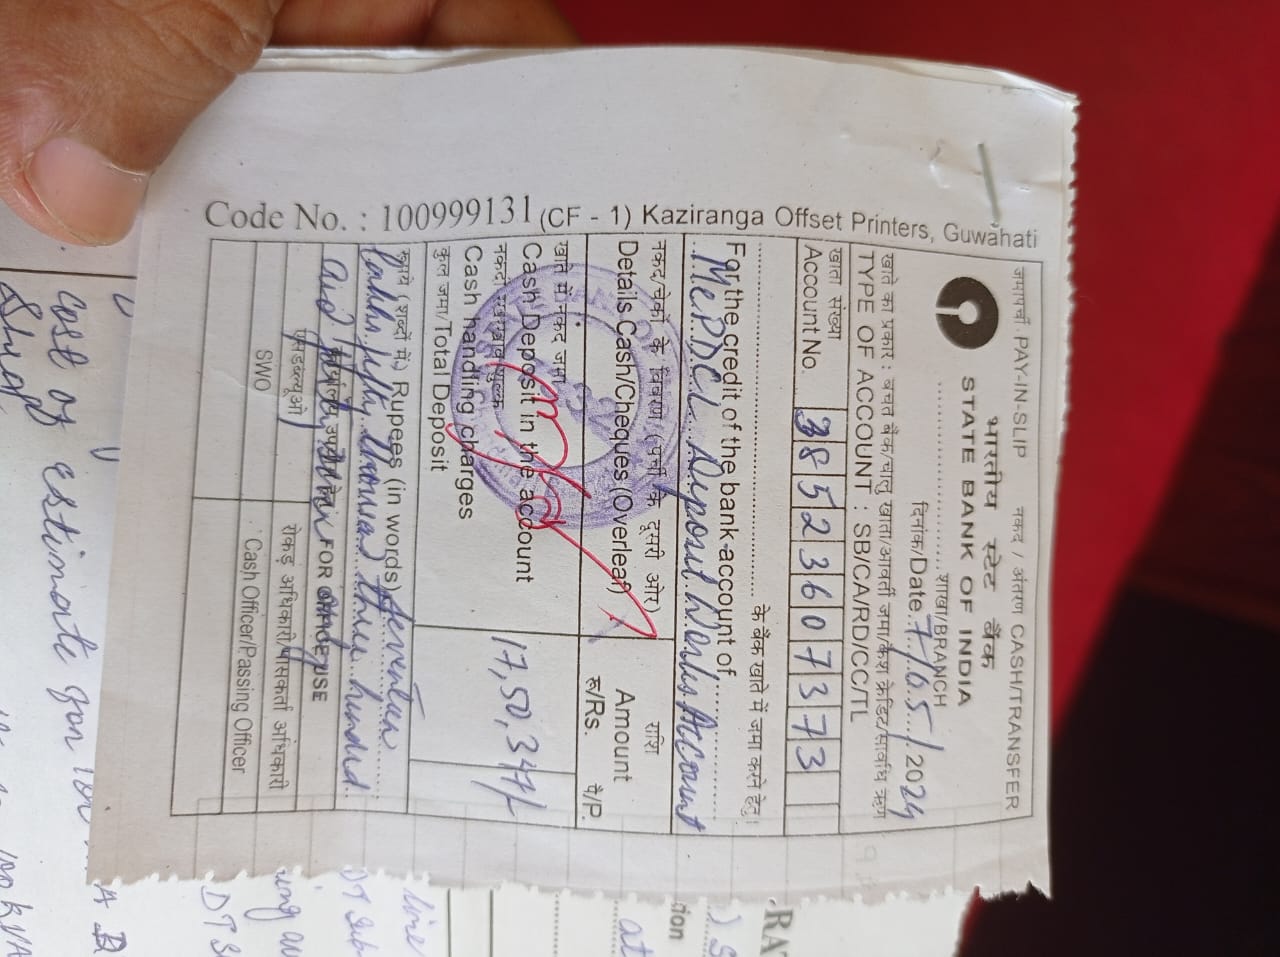 जमापर्ची PAY-IN-SLIP नकद / अंतरण CASH/TRANSFER
भारतीय स्टेट बैंक
STATE BANK OF INDIA
शाखा/BRANCH
दिनांक/Date 7/05/2024
खाते का प्रकार : बचत बैंक/चालू खाता/आवर्ती जमा/कैश क्रेडिट/सावधि ऋण
TYPE OF ACCOUNT : SB/CA/RD/CC/TL
खाता संख्या
Account No. 38523607373
के बैंक खाते में जमा करने हेतु।
For the credit of the bank account of
MePDCL Deposit Works Account
नकद/चेकों के विवरण (पर्ची के दूसरी ओर) राशि
Details Cash/Cheques (Overleaf) Amount
रू/Rs. पै/P.
खाते में नकद जमा
Cash Deposit in the account 17,50,347/-
नकदी रखरखाव शुल्क
Cash handling charges
कुल जमा/Total Deposit
रूपये (शब्दों में) Rupees (in words) Seventeen
lakhs fifty thousand three hundred
and only FOR OFFICE USE
एसडब्ल्यूओ रोकड़ अधिकारी/पासकर्ता अधिकारी
SWO Cash Officer/Passing Officer
Code No. : 100999131 (CF - 1) Kaziranga Offset Printers, Guwahati
cost of estimate for
line
DT Sub
at
tion